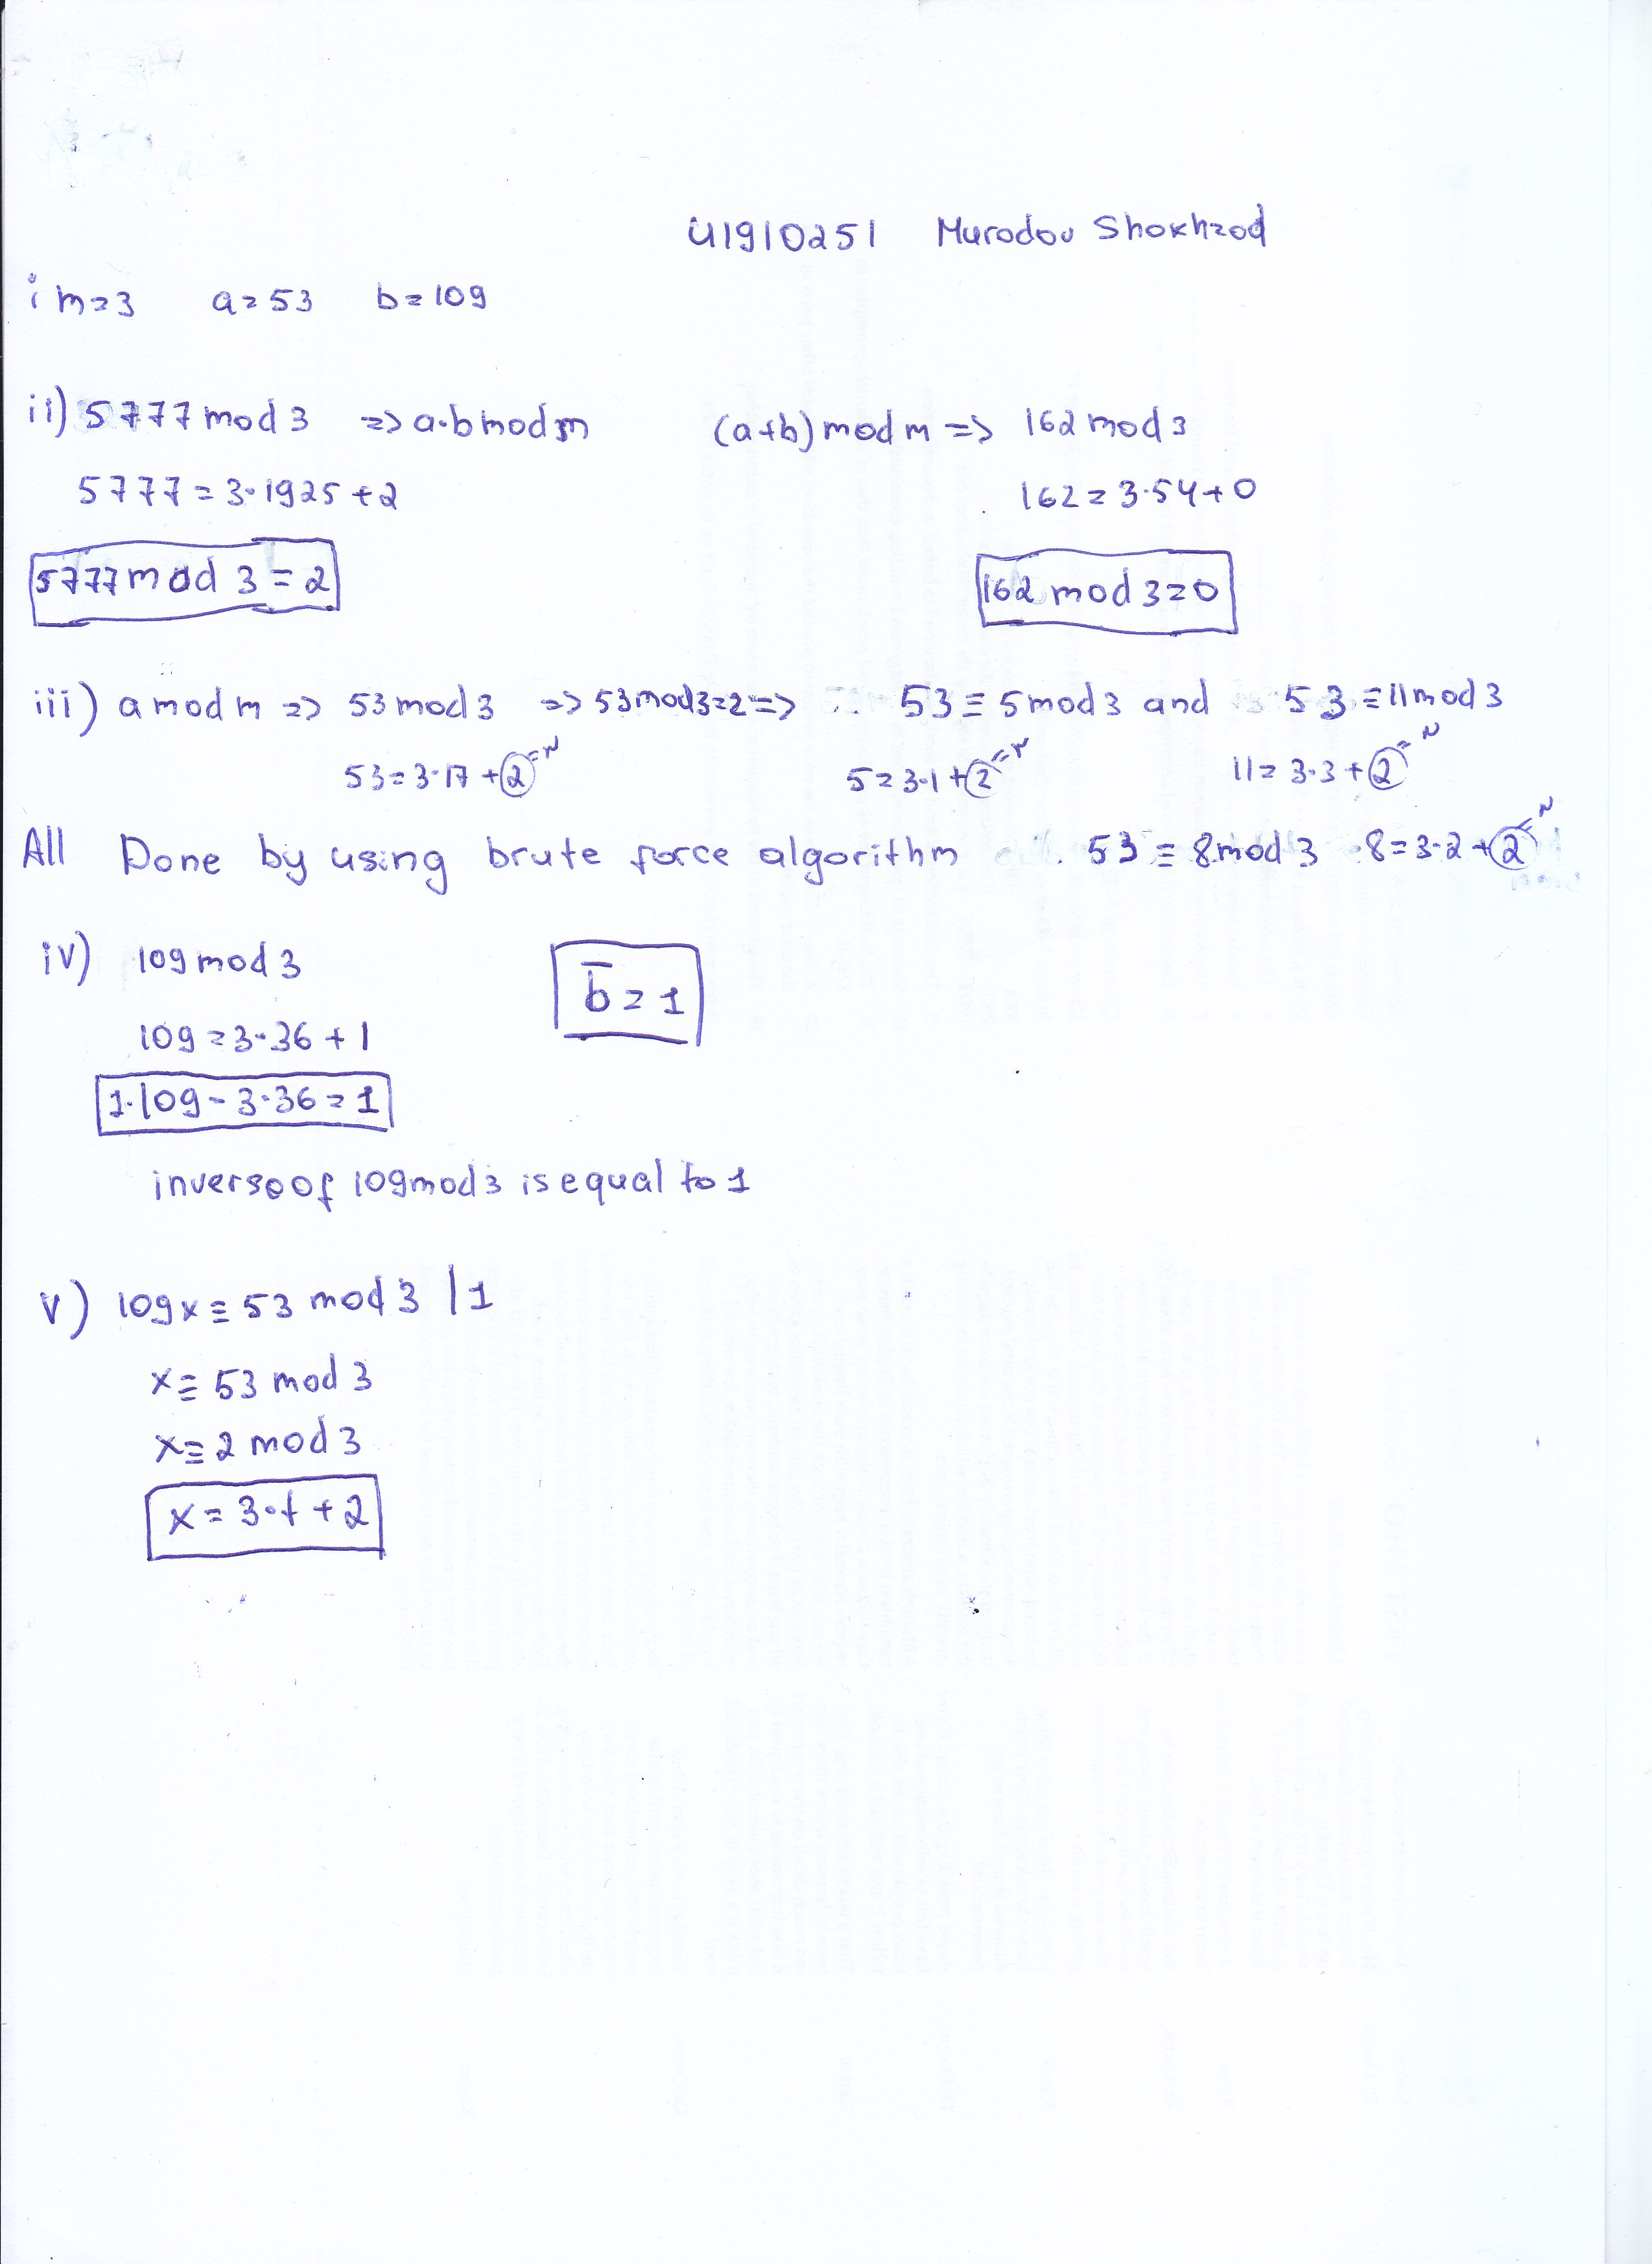 U1910251 Murodov Shoxhzod
i m=3 a=53 b=109
ii) 5777 mod 3 => a·b mod m (a+b) mod m => 162 mod 3
5777 = 3·1925 + 2 162 = 3·54 + 0
5777 mod 3 = 2 162 mod 3 = 0
iii) a mod m => 53 mod 3 => 53 mod 3 = 2 => 53 ≡ 5 mod 3 and 53 ≡ 11 mod 3
53 = 3·17 + 2 = r 5 = 3·1 + 2 = r 11 = 3·3 + 2 = r
All Done by using brute force algorithm 53 ≡ 8 mod 3 8 = 3·2 + 2 = r
iv) 109 mod 3 b̅ = 1
109 = 3·36 + 1
1·109 - 3·36 = 1
inverse of 109 mod 3 is equal to 1
v) 109x ≡ 53 mod 3 | 1
x ≡ 53 mod 3
x ≡ 2 mod 3
x = 3·t + 2